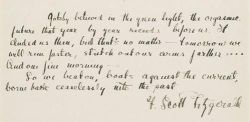 Gatsby believed in the green light, the orgastic
future that year by year recedes before us. It
eluded us then, but that's no matter — tomorrow we
will run faster, stretch out our arms farther ....
And one fine morning —
So we beat on, boats against the current,
borne back ceaselessly into the past
F. Scott Fitzgerald